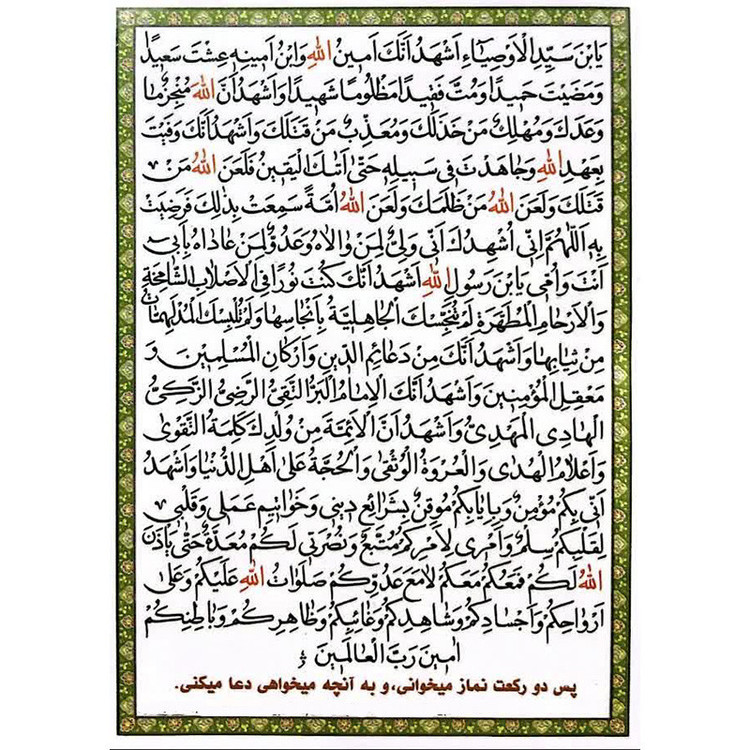 يَابْنَ سَيِّدِ الْاَوْصِيٰاءِ اَشْهَدُ اَنَّكَ اَمٖينُ اللهِ وَابْنُ اَمٖينِهٖ عِشْتَ سَعٖيداً
وَمَضَيْتَ حَمٖيداً وَمُتَّ فَقٖيداً مَظْلُوماً شَهٖيداً وَاَشْهَدُ اَنَّ اللهَ مُنْجِزٌ مٰا
وَعَدَكَ وَمُهْلِكٌ مَنْ خَذَلَكَ وَمُعَذِّبٌ مَنْ قَتَلَكَ وَاَشْهَدُ اَنَّكَ وَفَيْتَ
بِعَهْدِ اللهِ وَجٰاهَدْتَ فٖي سَبٖيلِهٖ حَتّٰى اَتٰىكَ الْيَقٖينُ فَلَعَنَ اللهُ مَنْ
قَتَلَكَ وَلَعَنَ اللهُ مَنْ ظَلَمَكَ وَلَعَنَ اللهُ اُمَّةً سَمِعَتْ بِذٰلِكَ فَرَضِيَتْ
بِهٖ اَللّٰهُمَّ اِنّٖي اُشْهِدُكَ اَنّٖي وَلِيٌّ لِمَنْ وٰالٰاهُ وَعَدُوٌّ لِمَنْ عٰادٰاهُ بِاَبٖي
اَنْتَ وَاُمّٖي يَابْنَ رَسُولِ اللهِ اَشْهَدُ اَنَّكَ كُنْتَ نُوراً فِي الْاَصْلٰابِ الشّٰامِخَةِ
وَالْاَرْحٰامِ الْمُطَهَّرَةِ لَمْ تُنَجِّسْكَ الْجٰاهِلِيَّةُ بِاَنْجٰاسِهٰا وَلَمْ تُلْبِسْكَ الْمُدْلَهِمّٰاتُ
مِنْ ثِيٰابِهٰا وَاَشْهَدُ اَنَّكَ مِنْ دَعٰائِمِ الدّٖينِ وَاَرْكٰانِ الْمُسْلِمٖينَ وَ
مَعْقِلِ الْمُؤْمِنٖينَ وَاَشْهَدُ اَنَّكَ الْاِمٰامُ الْبَرُّ التَّقِيُّ الرَّضِيُّ الزَّكِيُّ
الْهٰادِي الْمَهْدِيُّ وَاَشْهَدُ اَنَّ الْاَئِمَّةَ مِنْ وُلْدِكَ كَلِمَةُ التَّقْوٰى
وَاَعْلٰامُ الْهُدٰى وَالْعُرْوَةُ الْوُثْقٰى وَالْحُجَّةُ عَلٰى اَهْلِ الدُّنْيٰا وَاَشْهَدُ
اَنّٖي بِكُمْ مُؤْمِنٌ وَبِاِيٰابِكُمْ مُوقِنٌ بِشَرٰائِعِ دٖينٖي وَخَوٰاتٖيمِ عَمَلٖي وَقَلْبٖي
لِقَلْبِكُمْ سِلْمٌ وَاَمْرٖي لِاَمْرِكُمْ مُتَّبِعٌ وَنُصْرَتٖي لَكُمْ مُعَدَّةٌ حَتّٰى يَأْذَنَ
اللهُ لَكُمْ فَمَعَكُمْ مَعَكُمْ لٰا مَعَ عَدُوِّكُمْ صَلَوٰاتُ اللهِ عَلَيْكُمْ وَعَلٰى
اَرْوٰاحِكُمْ وَاَجْسٰادِكُمْ وَشٰاهِدِكُمْ وَغٰائِبِكُمْ وَظٰاهِرِكُمْ وَبٰاطِنِكُمْ
اٰمٖينَ رَبَّ الْعٰالَمٖينَ
پس دو رکعت نماز میخوانی، و به آنچه میخواهی دعا میکنی.